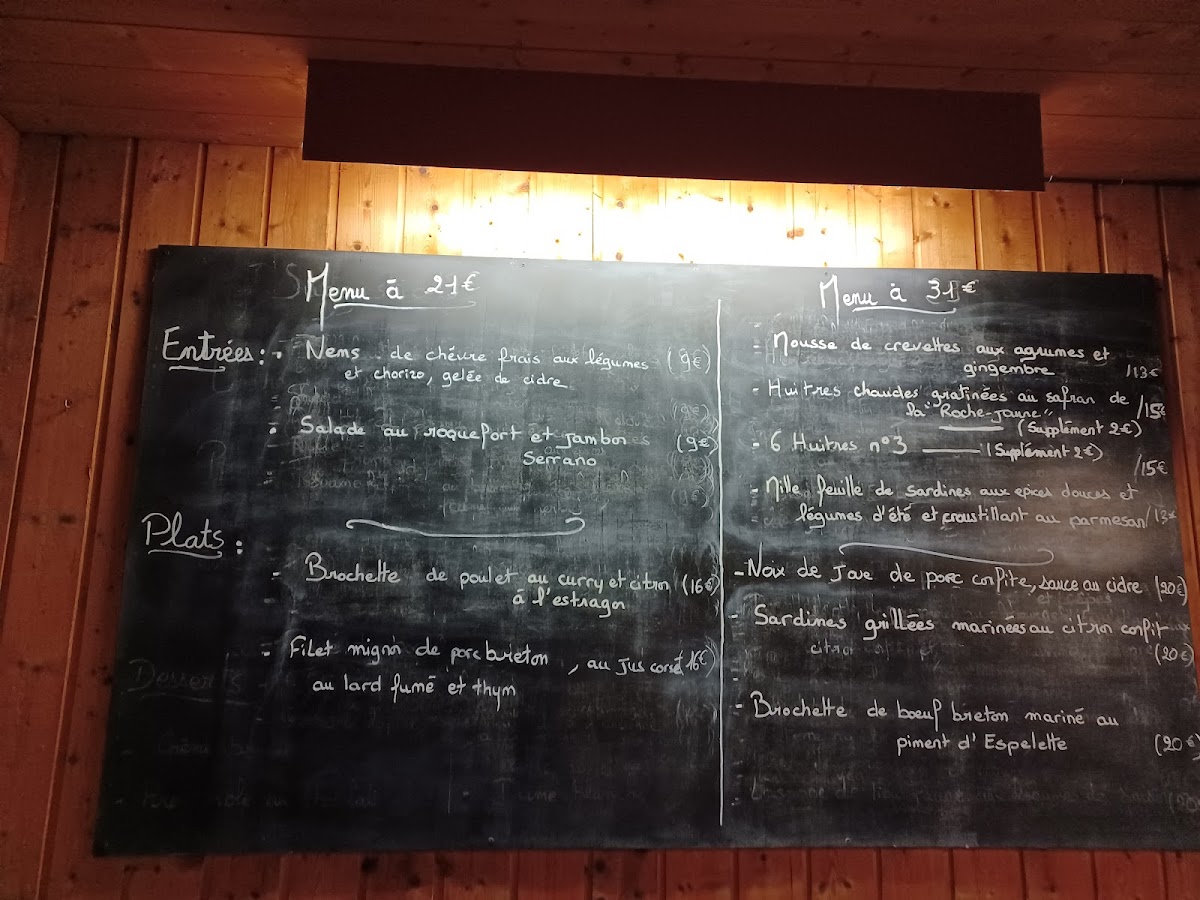 Menu à 21€
Entrées :
• Nems de chèvre frais aux légumes (9€)
et chorizo, gelée de cidre
• Salade au roquefort et jambon (9€)
Serrano
Plats :
- Brochette de poulet au curry et citron (16€)
à l'estragon
- Filet mignon de porc breton, au jus corsé 16€)
au lard fumé et thym
Menu à 31€
- Mousse de crevettes aux agrumes et
gingembre /13€
- Huitres chaudes gratinées au safran de
la "Roche-jaune" /15€
(Supplément 2€)
- 6 Huitres n°3 (Supplément 2€)
/15€
- Mille feuille de sardines aux epices douces et
légumes d'été et croustillant au parmesan /13€
- Noix de Joue de porc confite, sauce au cidre (20€)
- Sardines grillées marinées au citron confit
(20€)
- Brochette de bœuf breton mariné au
piment d'Espelette (20€)
Desserts